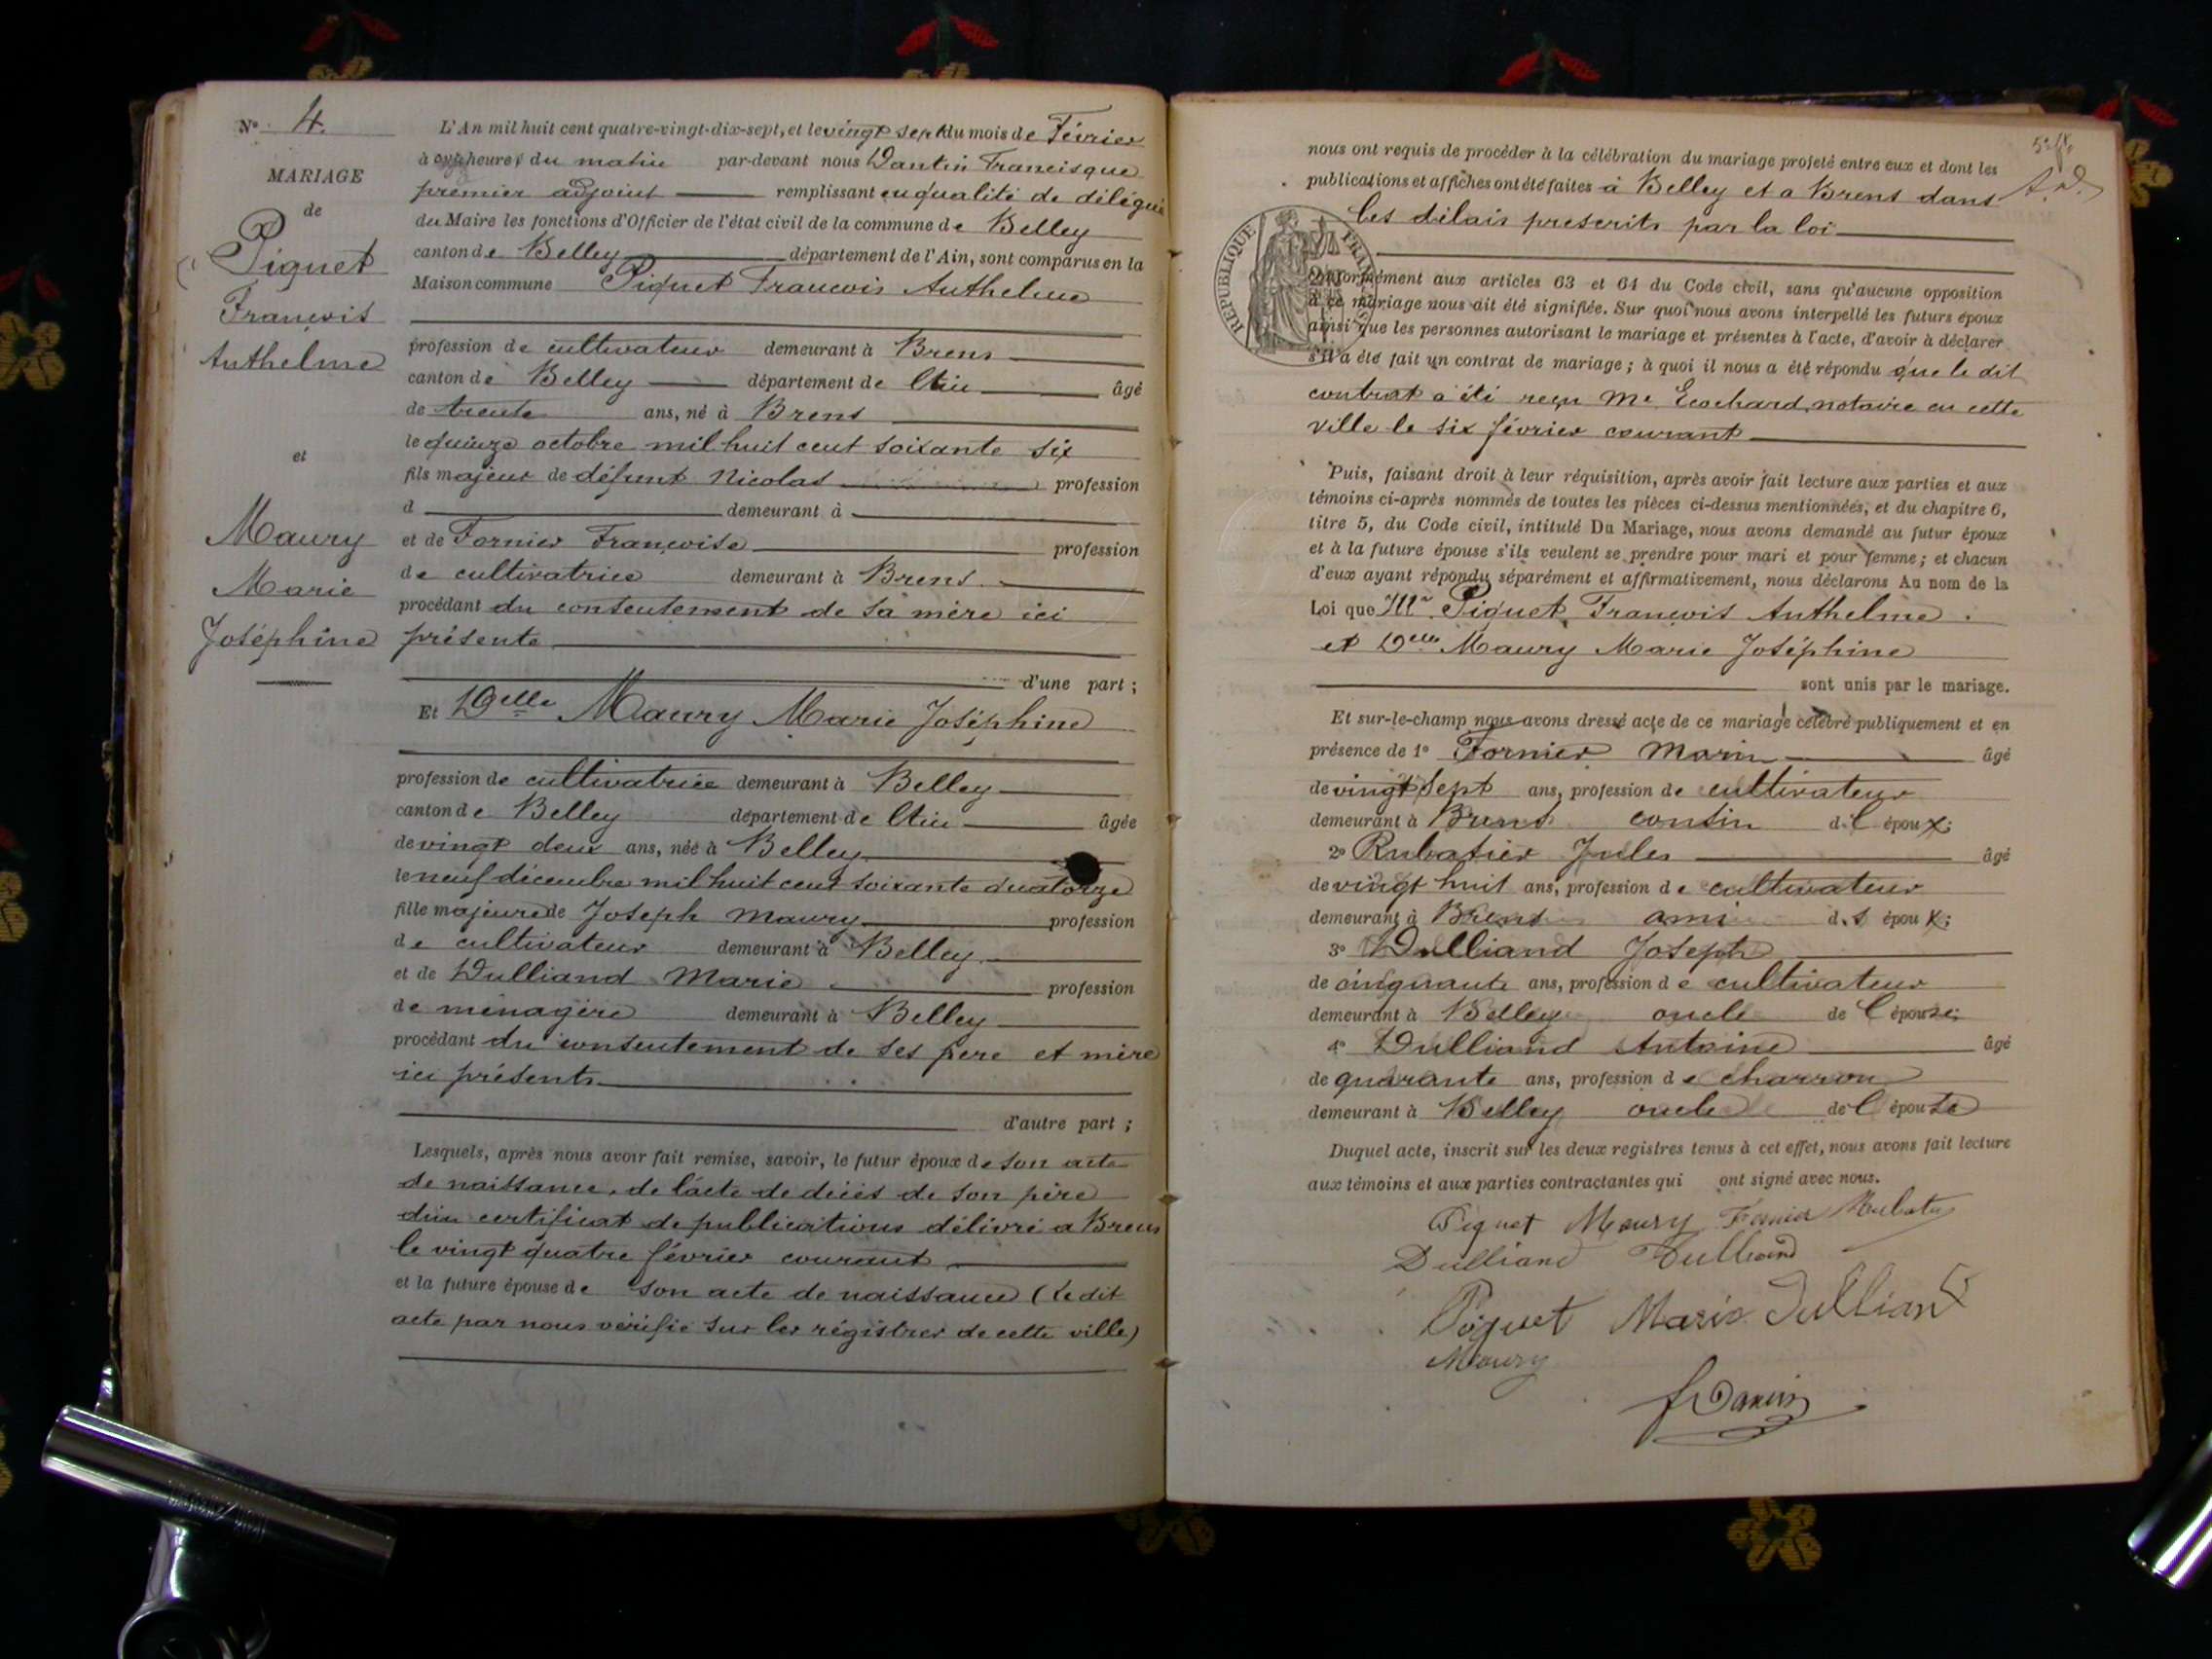 Nº 4
MARIAGE
de
Piquet
François
Anthelme
et
Maury
Marie
Joséphine
L'An mil huit cent quatre-vingt-dix-sept, et le vingt sept du mois de Février
à heures du matin par-devant nous Dantin Francisque
premier adjoint remplissant en qualité de délégué
du Maire les fonctions d'Officier de l'état civil de la commune de Belley
canton de Belley département de l'Ain, sont comparus en la
Maison commune Piquet Francois Anthelme
profession de cultivateur demeurant à Brens
canton de Belley département de l'Ain âgé
de trente ans, né à Brens
le quinze octobre mil huit cent soixante six
fils majeur de défunt Nicolas profession
d demeurant à
et de Fornier Françoise profession
de cultivatrice demeurant à Brens
procédant du consentement de sa mère ici
présente
d'une part ;
Et Delle Maury Marie Joséphine
profession de cultivatrice demeurant à Belley
canton de Belley département de l'Ain âgée
de vingt deux ans, née à Belley
le neuf décembre mil huit cent soixante quatorze
fille majeure de Joseph Maury profession
de cultivateur demeurant à Belley
et de Dulliand Marie profession
de ménagère demeurant à Belley
procédant du consentement de ses père et mère
ici présents
d'autre part ;
Lesquels, après nous avoir fait remise, savoir, le futur époux de son acte
de naissance, de l'acte de décès de son père
d'un certificat de publications délivré a Brens
le vingt quatre février courant
et la future épouse de son acte de naissance (Le dit
acte par nous vérifié sur les régistres de cette ville)
nous ont requis de procéder à la célébration du mariage projeté entre eux et dont les
publications et affiches ont été faites à Belley et a Brens dans
les délais prescrits par la loi
REPUBLIQUE FRANÇAISE
Conformément aux articles 63 et 64 du Code civil, sans qu'aucune opposition
à ce mariage nous ait été signifiée. Sur quoi nous avons interpellé les futurs époux
ainsi que les personnes autorisant le mariage et présentes à l'acte, d'avoir à déclarer
s'il a été fait un contrat de mariage ; à quoi il nous a été répondu que le dit
contrat a été reçu Me Ecochard, notaire en cette
ville le six février courant
Puis, faisant droit à leur réquisition, après avoir fait lecture aux parties et aux
témoins ci-après nommés de toutes les pièces ci-dessus mentionnées, et du chapitre 6,
titre 5, du Code civil, intitulé Du Mariage, nous avons demandé au futur époux
et à la future épouse s'ils veulent se prendre pour mari et pour femme ; et chacun
d'eux ayant répondu séparément et affirmativement, nous déclarons Au nom de la
Loi que Mr Piquet, François Anthelme
et Delle Maury Marie Joséphine
sont unis par le mariage.
Et sur-le-champ nous avons dressé acte de ce mariage célébré publiquement et en
présence de 1º Fornier Marin âgé
de vingt sept ans, profession de cultivateur
demeurant à Brens cousin de l'époux ;
2º Rubatier Jules âgé
de vingt huit ans, profession de cultivateur
demeurant à Brens ami des époux ;
3º Dulliand Joseph
de cinquante ans, profession de cultivateur
demeurant à Belley oncle de l'épouse ;
4º Dulliand Antoine âgé
de quarante ans, profession de charron
demeurant à Belley oncle de l'épouse
Duquel acte, inscrit sur les deux registres tenus à cet effet, nous avons fait lecture
aux témoins et aux parties contractantes qui ont signé avec nous.
Piquet Maury Fornier
Dulliand Dulliand
Piquet Marie Dulliand
Maury